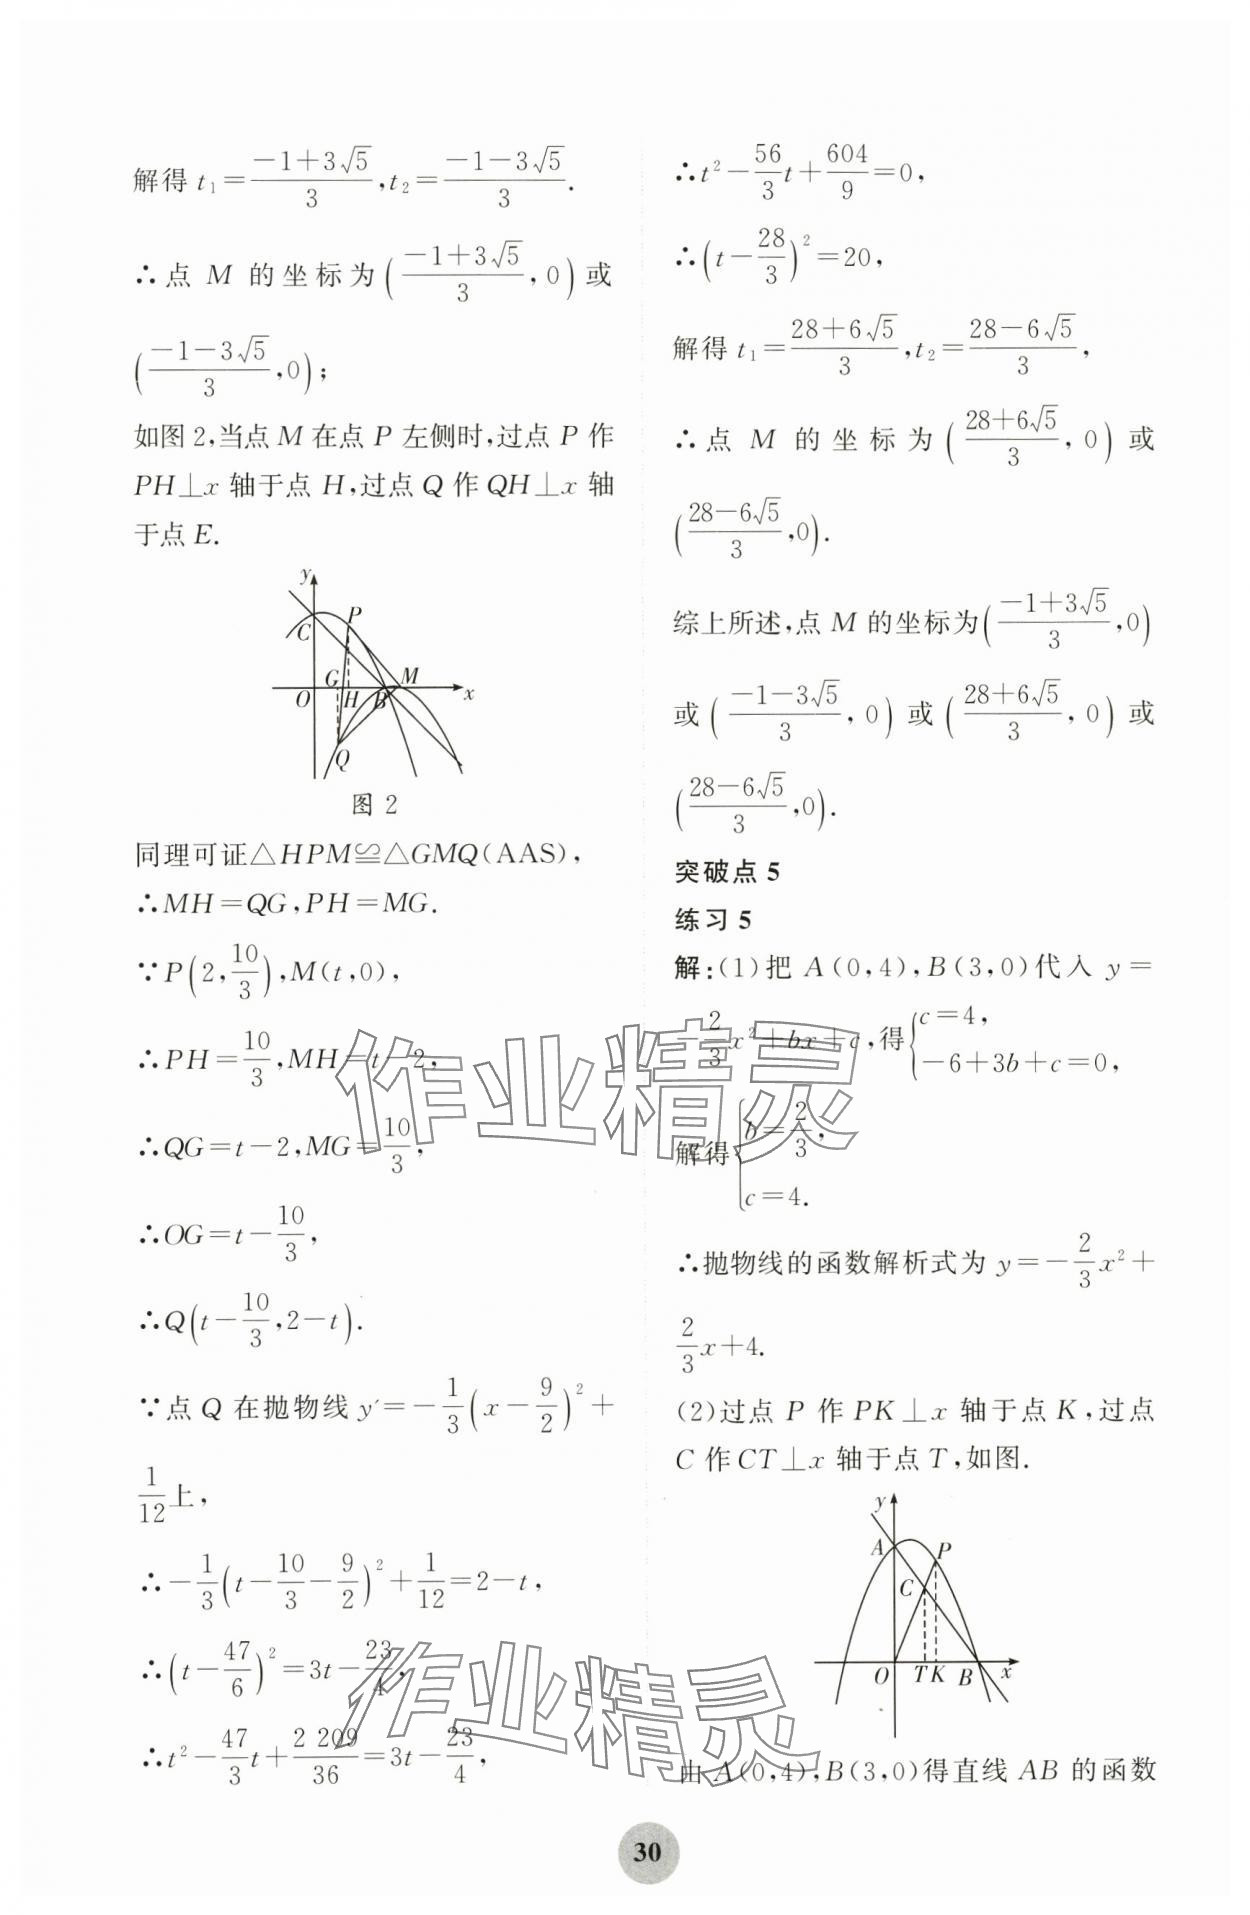 解得 t₁=(-1+3√5)/3,t₂=(-1-3√5)/3.
∴点 M 的坐标为((-1+3√5)/3,0)或
((-1-3√5)/3,0);
如图2,当点M在点P左侧时,过点P作
PH⊥x轴于点H,过点Q作QH⊥x轴
于点E.
y
P
C
G
M
O
H
B
x
Q
图2
同理可证△HPM≌△GMQ(AAS),
∴MH=QG,PH=MG.
∵P(2,10/3),M(t,0),
∴PH=10/3,MH=t-2,
∴QG=t-2,MG=10/3,
∴OG=t-10/3,
∴Q(t-10/3,2-t).
∵点Q在抛物线y′=-1/3(x-9/2)²+
1/12上,
∴-1/3(t-10/3-9/2)²+1/12=2-t,
∴(t-47/6)²=3t-23/4,
∴t²-47/3t+2 209/36=3t-23/4,
∴t²-56/3t+604/9=0,
∴(t-28/3)²=20,
解得 t₁=(28+6√5)/3,t₂=(28-6√5)/3,
∴点 M 的坐标为((28+6√5)/3,0)或
((28-6√5)/3,0).
综上所述,点M的坐标为((-1+3√5)/3,0)
或((-1-3√5)/3,0)或((28+6√5)/3,0)或
((28-6√5)/3,0).
突破点5
练习5
解:(1)把A(0,4),B(3,0)代入y=
-2/3x²+bx+c,得{c=4,
-6+3b+c=0,
解得{b=2/3,
c=4.
∴抛物线的函数解析式为y=-2/3x²+
2/3x+4.
(2)过点P作PK⊥x轴于点K,过点
C作CT⊥x轴于点T,如图.
y
A
P
C
O
T
K
B
x
由A(0,4),B(3,0)得直线AB的函数
作业精灵
作业精灵
30